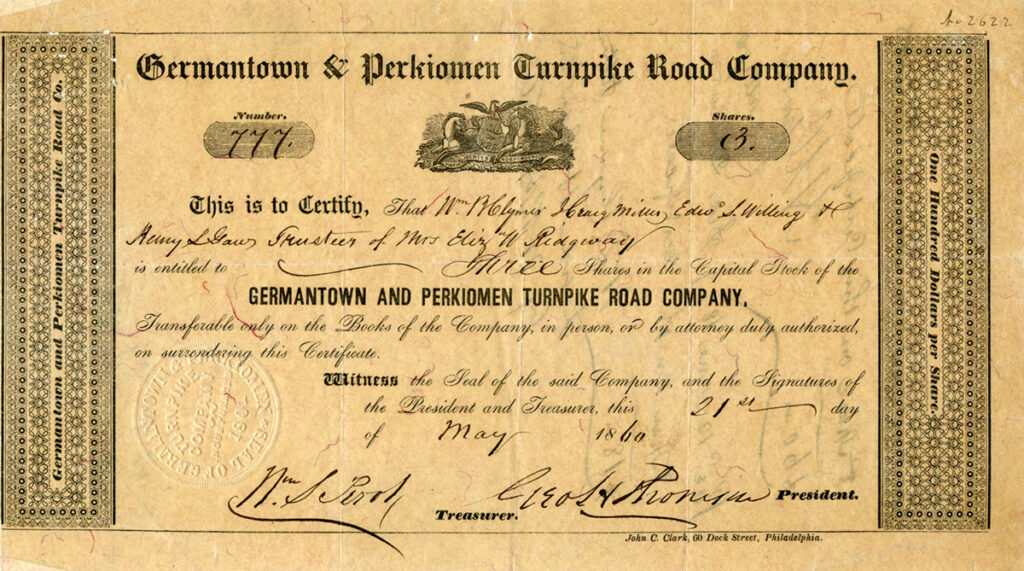 No 2622
Germantown & Perkiomen Turnpike Road Company.
Number.
777.
Shares.
3.
This is to Certify, That Wm B Clymer J Craig Miller, Edwd S. Willing &
Henry S Gaw Trustees of Mrs Elizth W Ridgway
is entitled to Three Shares in the Capital Stock of the
GERMANTOWN AND PERKIOMEN TURNPIKE ROAD COMPANY,
Transferable only on the Books of the Company, in person, or by attorney duly authorized,
on surrendering this Certificate.
Witness the Seal of the said Company, and the Signatures of
the President and Treasurer, this 21st day
of May 1860
Wm S Perot
Treasurer.
Geo H Thomson President.
John C. Clark, 60 Dock Street, Philadelphia.
Germantown and Perkiomen Turnpike Road Co.
One Hundred Dollars per Share.
SEAL OF GERMANTOWN & PERKIOMEN
TURNPIKE
COMPANY